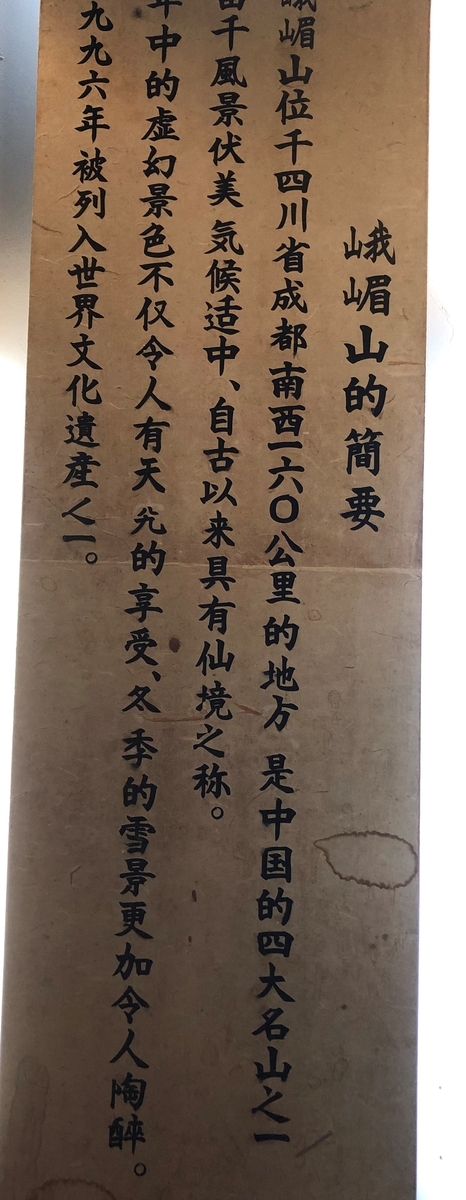 峨嵋山的簡要
峨嵋山位千四川省成都南西一六〇公里的地方 是中国的四大名山之一
由千風景伏美 気候适中、自古以来具有仙境之称。
年中的虚幻景色不仅令人有天 的享受、冬季的雪景更加令人陶醉。
九九六年被列入世界文化遺産之一。